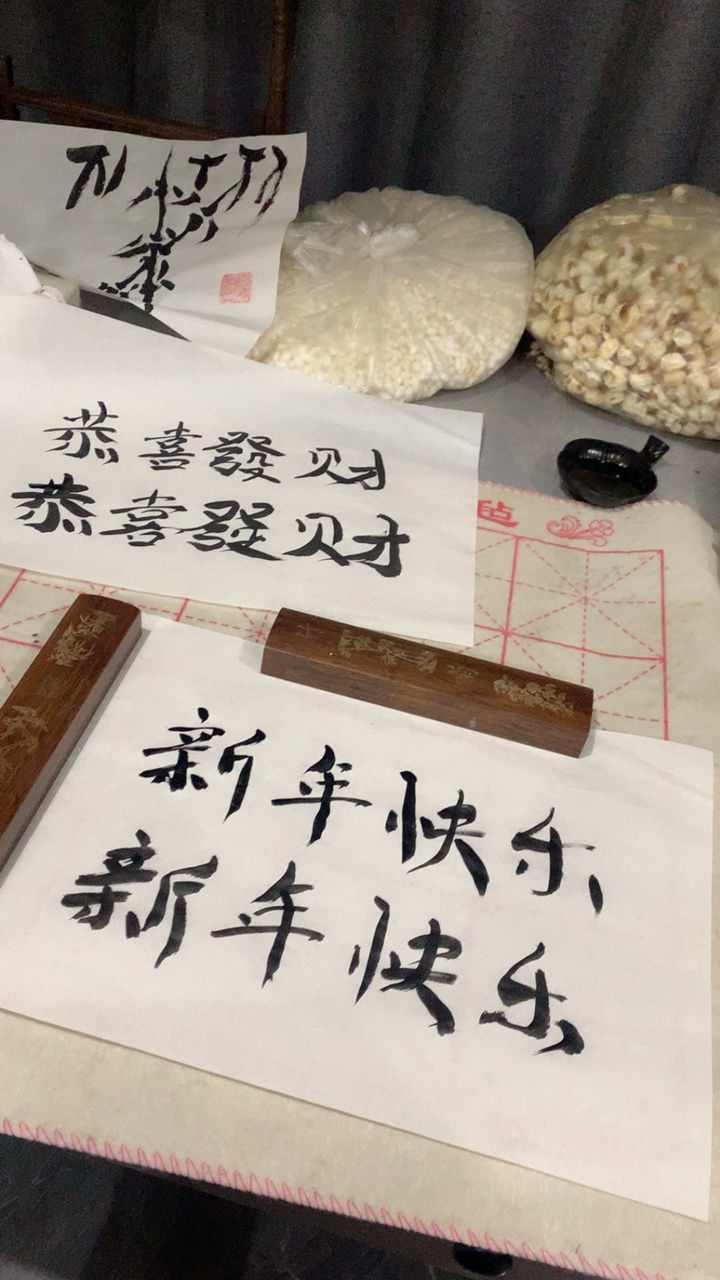 恭喜發财
恭喜發财
毡
新年快乐
新年快乐